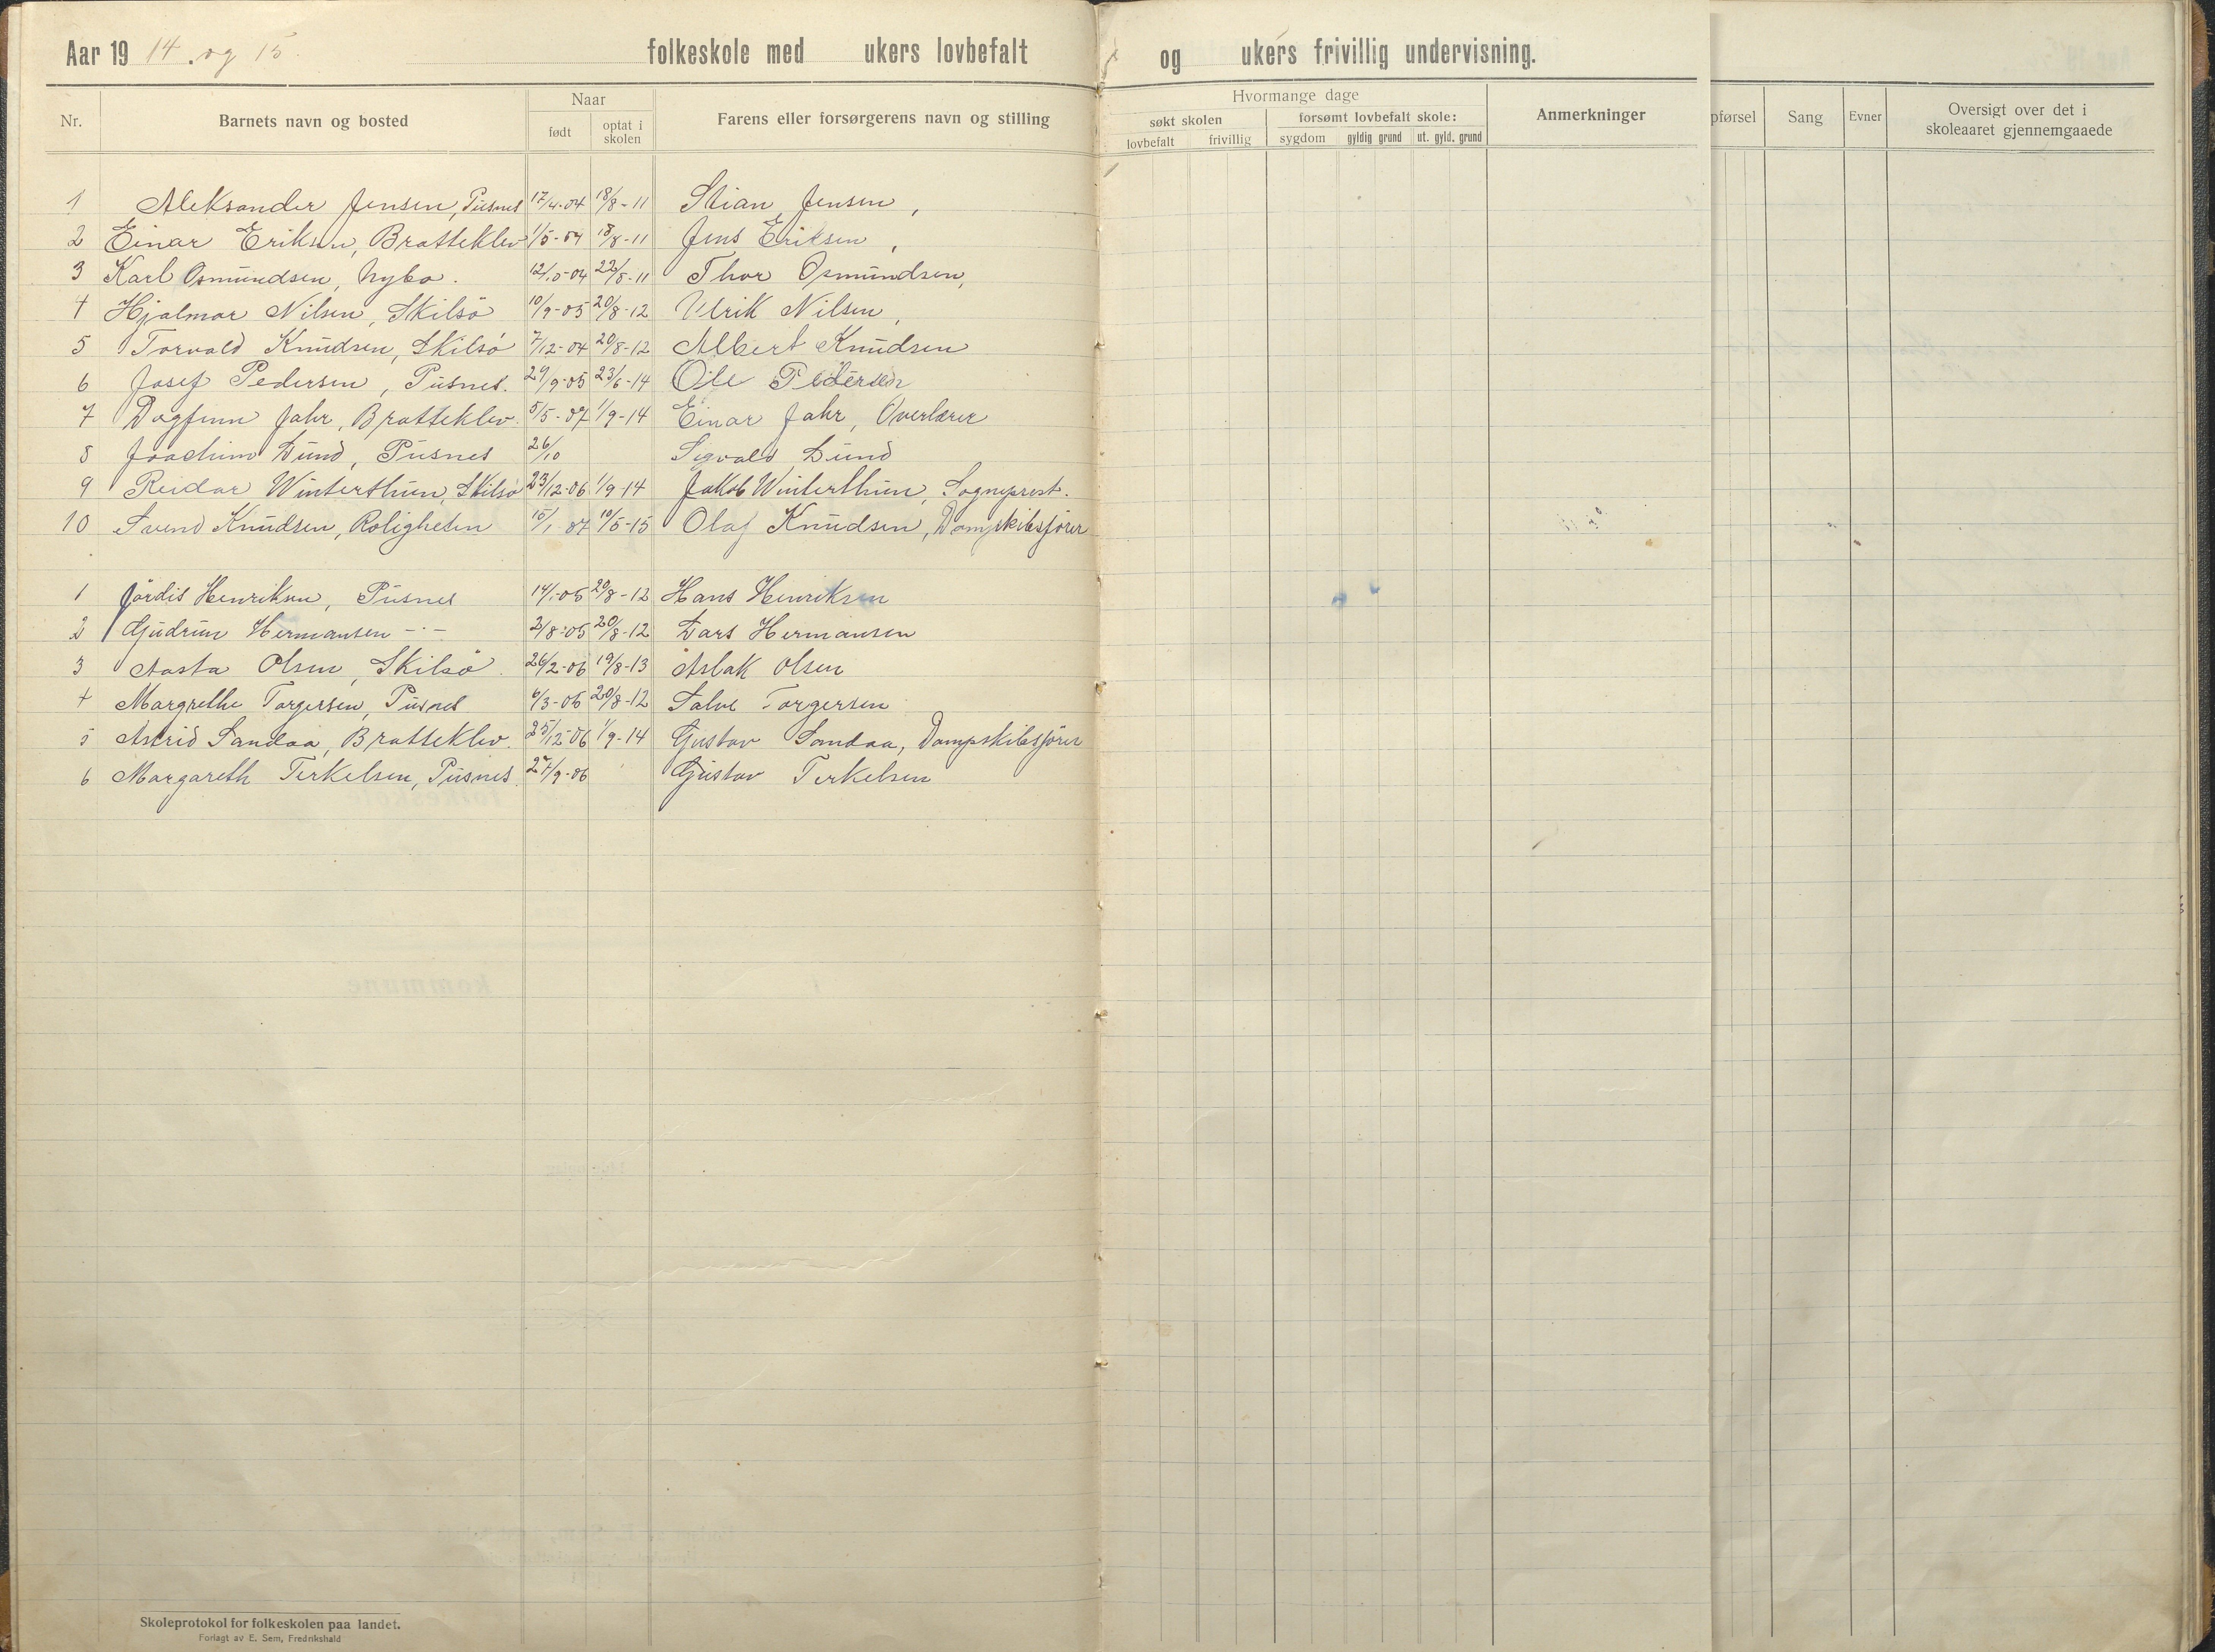 Aar 19 14. og 15. folkeskole med ukers lovbefalt og ukers frivillig undervisning.
Nr. Barnets navn og bosted Naar født optat i skolen Farens eller forsørgerens navn og stilling Hvormange dage søkt skolen lovbefalt frivillig forsømt lovbefalt skole: sygdom gyldig grund ut. gyld. grund Anmerkninger pførsel Sang Evner Oversigt over det i skoleaaret gjennemgaaede
1 Aleksander Jensen, Pusnes 17/4-04 18/8-11 Stian Jensen,
2 Einar Eriksen, Bratteklev 1/5-04 18/8-11 Jens Eriksen,
3 Karl Osmundsen, Nybo. 12/10-04 22/8-11 Thor Osmundsen,
4 Hjalmar Nilsen, Skilsö 10/9-05 20/8-12 Ulrik Nilsen,
5 Torvald Knudsen, Skilsö 7/12-04 20/8-12 Albert Knudsen
6 Josef Pedersen, Pusnes. 29/9-05 23/6-14 Ole Pedersen
7 Dagfinn Jahr, Bratteklev. 5/5-07 1/9-14 Einar Jahr, Overlærer
8 Joachim Lund, Pusnes 26/10 Sigvald Lund
9 Reidar Winterthun, Skilsö 23/12-06 1/9-14 Jakob Winterthun, Sogneprest.
10 Svend Knudsen, Roligheten 15/1-07 10/5-15 Olaf Knudsen, Dampskibsförer
1 Jördis Henriksen, Pusnes 14/1-05 20/8-12 Hans Henriksen
2 Gudrun Hermansen -"- 2/8-05 20/8-12 Lars Hermansen
3 Aasta Olsen, Skilsö. 26/2-06 19/8-13 Aslak Olsen
4 Margrethe Torgersen, Pusnes 6/3-05 20/8-12 Salve Torgersen
5 Astrid Sandaa, Bratteklev. 25/12-06 1/9-14 Gustav Sandaa, Dampskibsförer
6 Margareth Terkelsen, Pusnes. 27/9-06 Gustav Terkelsen
Skoleprotokol for folkeskolen paa landet.
Forlagt av E. Sem, Fredrikshald